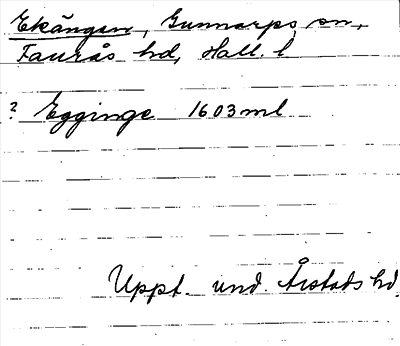 Ekängen, Gunnarps sn,
Faurås hd, Hall. l
? Egginge 1603 ml
Uppt. und. Årstads hd.